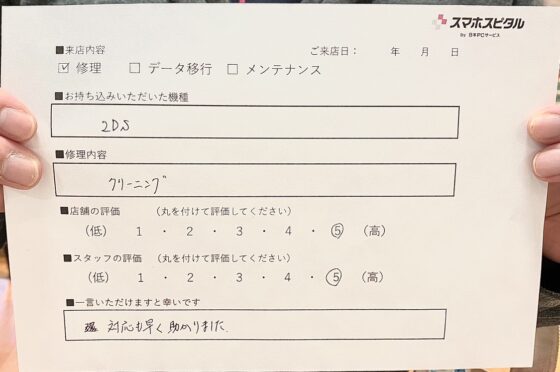 スマホスピタル
by 日本PCサービス
■来店内容 ご来店日： 年 月 日
☑ 修理 □ データ移行 □ メンテナンス
■お持ち込みいただいた機種
2DS
■修理内容
クリーニング
■店舗の評価 （丸を付けて評価してください）
（低） 1 ・ 2 ・ 3 ・ 4 ・ ⑤ （高）
■スタッフの評価 （丸を付けて評価してください）
（低） 1 ・ 2 ・ 3 ・ 4 ・ ⑤ （高）
■一言いただけますと幸いです
対応も早く助かりました.